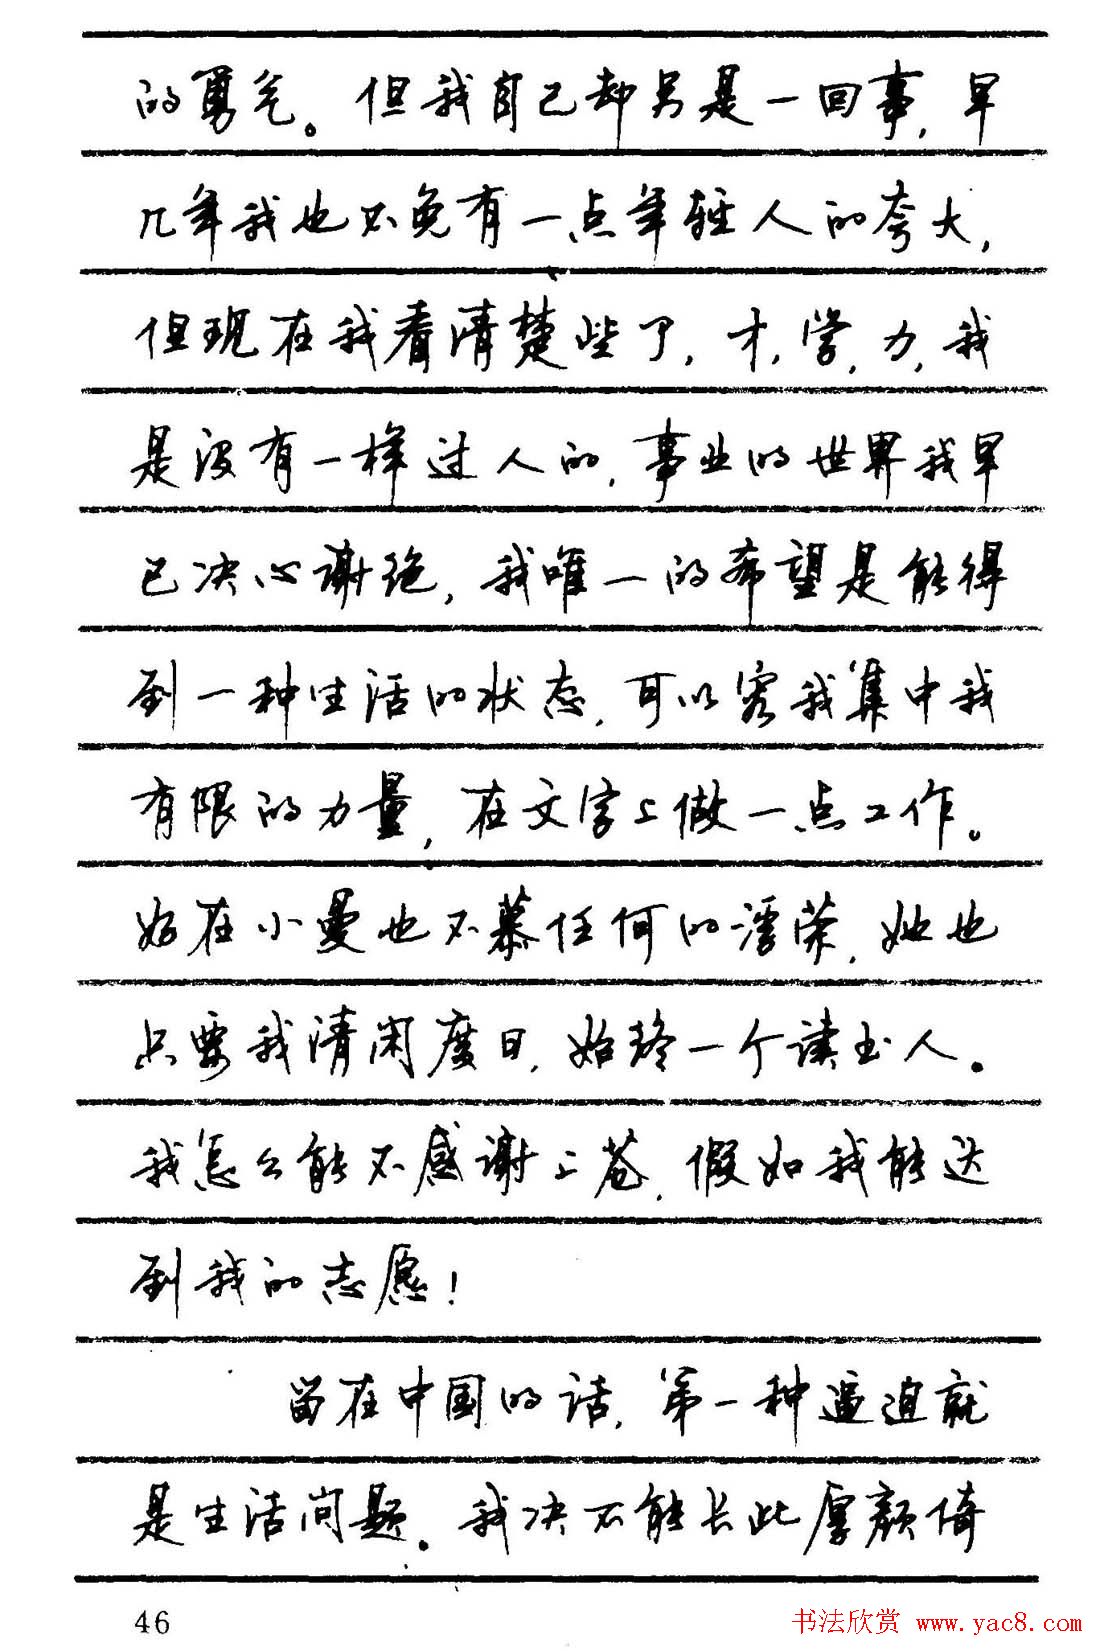 的勇气。但我自己却另是一回事,早
几年我也不免有一点年轻人的夸大,
但现在我看清楚些了,才,学,力,我
是没有一样过人的,事业的世界我早
已决心谢绝,我唯一的希望是能得
到一种生活的状态,可以容我集中我
有限的力量,在文字上做一点工作。
好在小曼也不慕任何的浮荣,她也
只要我清闲度日,始终一个读书人。
我怎么能不感谢上苍,假如我能达
到我的志愿!
留在中国的话,第一种逼迫就
是生活问题。我决不能长此厚颜倚
46
书法欣赏 www.yac8.com